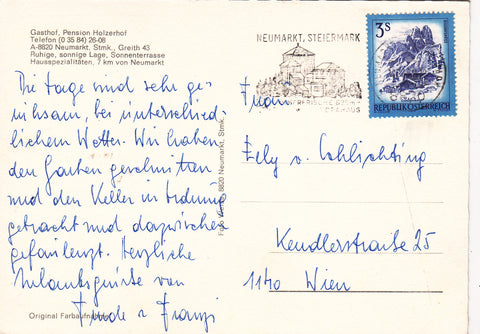 Gasthof, Pension Holzerhof
Telefon (0 35 84) 26-08
A-8820 Neumarkt, Stmk., Greith 43
Ruhige, sonnige Lage, Sonnenterrasse
Hausspezialitäten, 7 km von Neumarkt
Die Tage sind sehr ge-
ruhsam, bei unterschied-
lichem Wetter. Wir haben
den Garten geschnitten
und den Keller in Ordnung
gebracht und dazwischen
gefaulenzt. Herzliche
Urlaubsgrüsse von
Original Farbaufnahme
8820 Neumarkt, Stmk.
NEUMARKT, STEIERMARK
3S
REPUBLIK ÖSTERREICH
Frau
Lely v. Schlichting
Kendlerstraße 25
1140 Wien